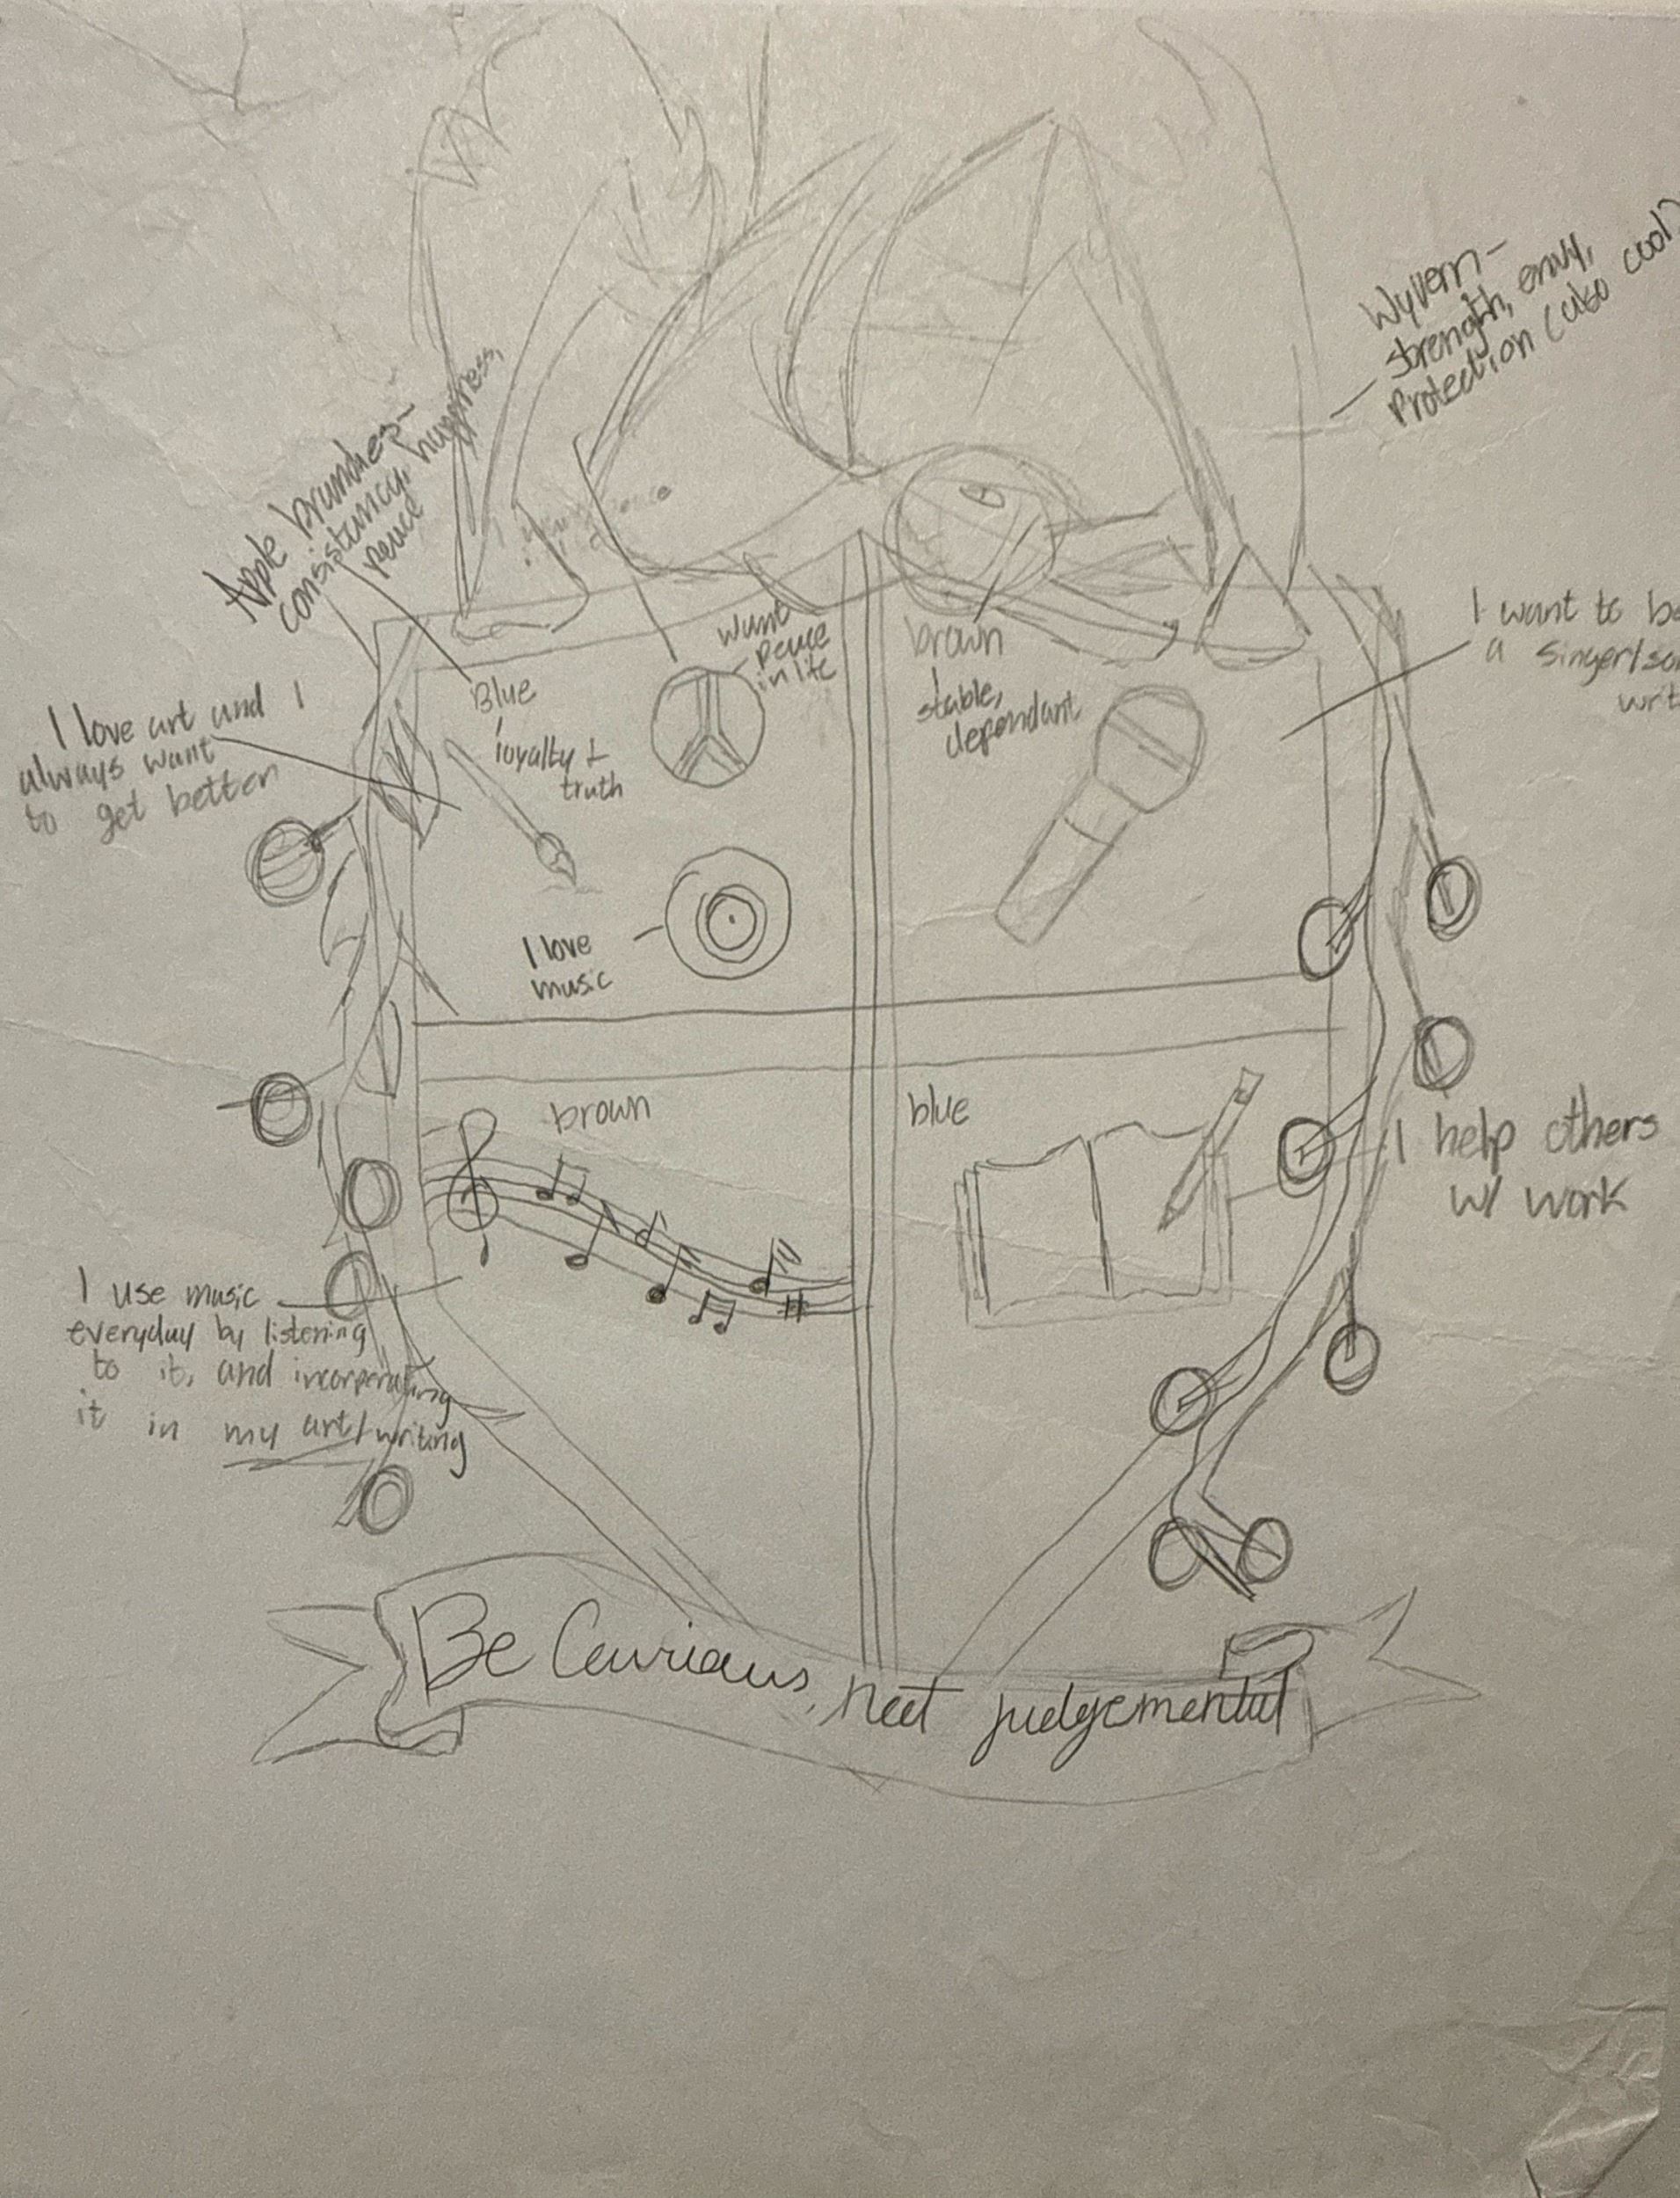 Wyvern-
strength, envy,
Protection (also cool)
Apple brunches-
consistuncy, huppness,
peuce
I want to be
a singer/so
writ
want
peuce
in life
brown
stable,
dependant
Blue
loyalty +
truth
I love art and I
always want
to get better
I love
music
brown
blue
I help others
w/ work
I use music
everyday by listening
to it, and incorperating
it in my art/writing
Be Curious, not judgemental